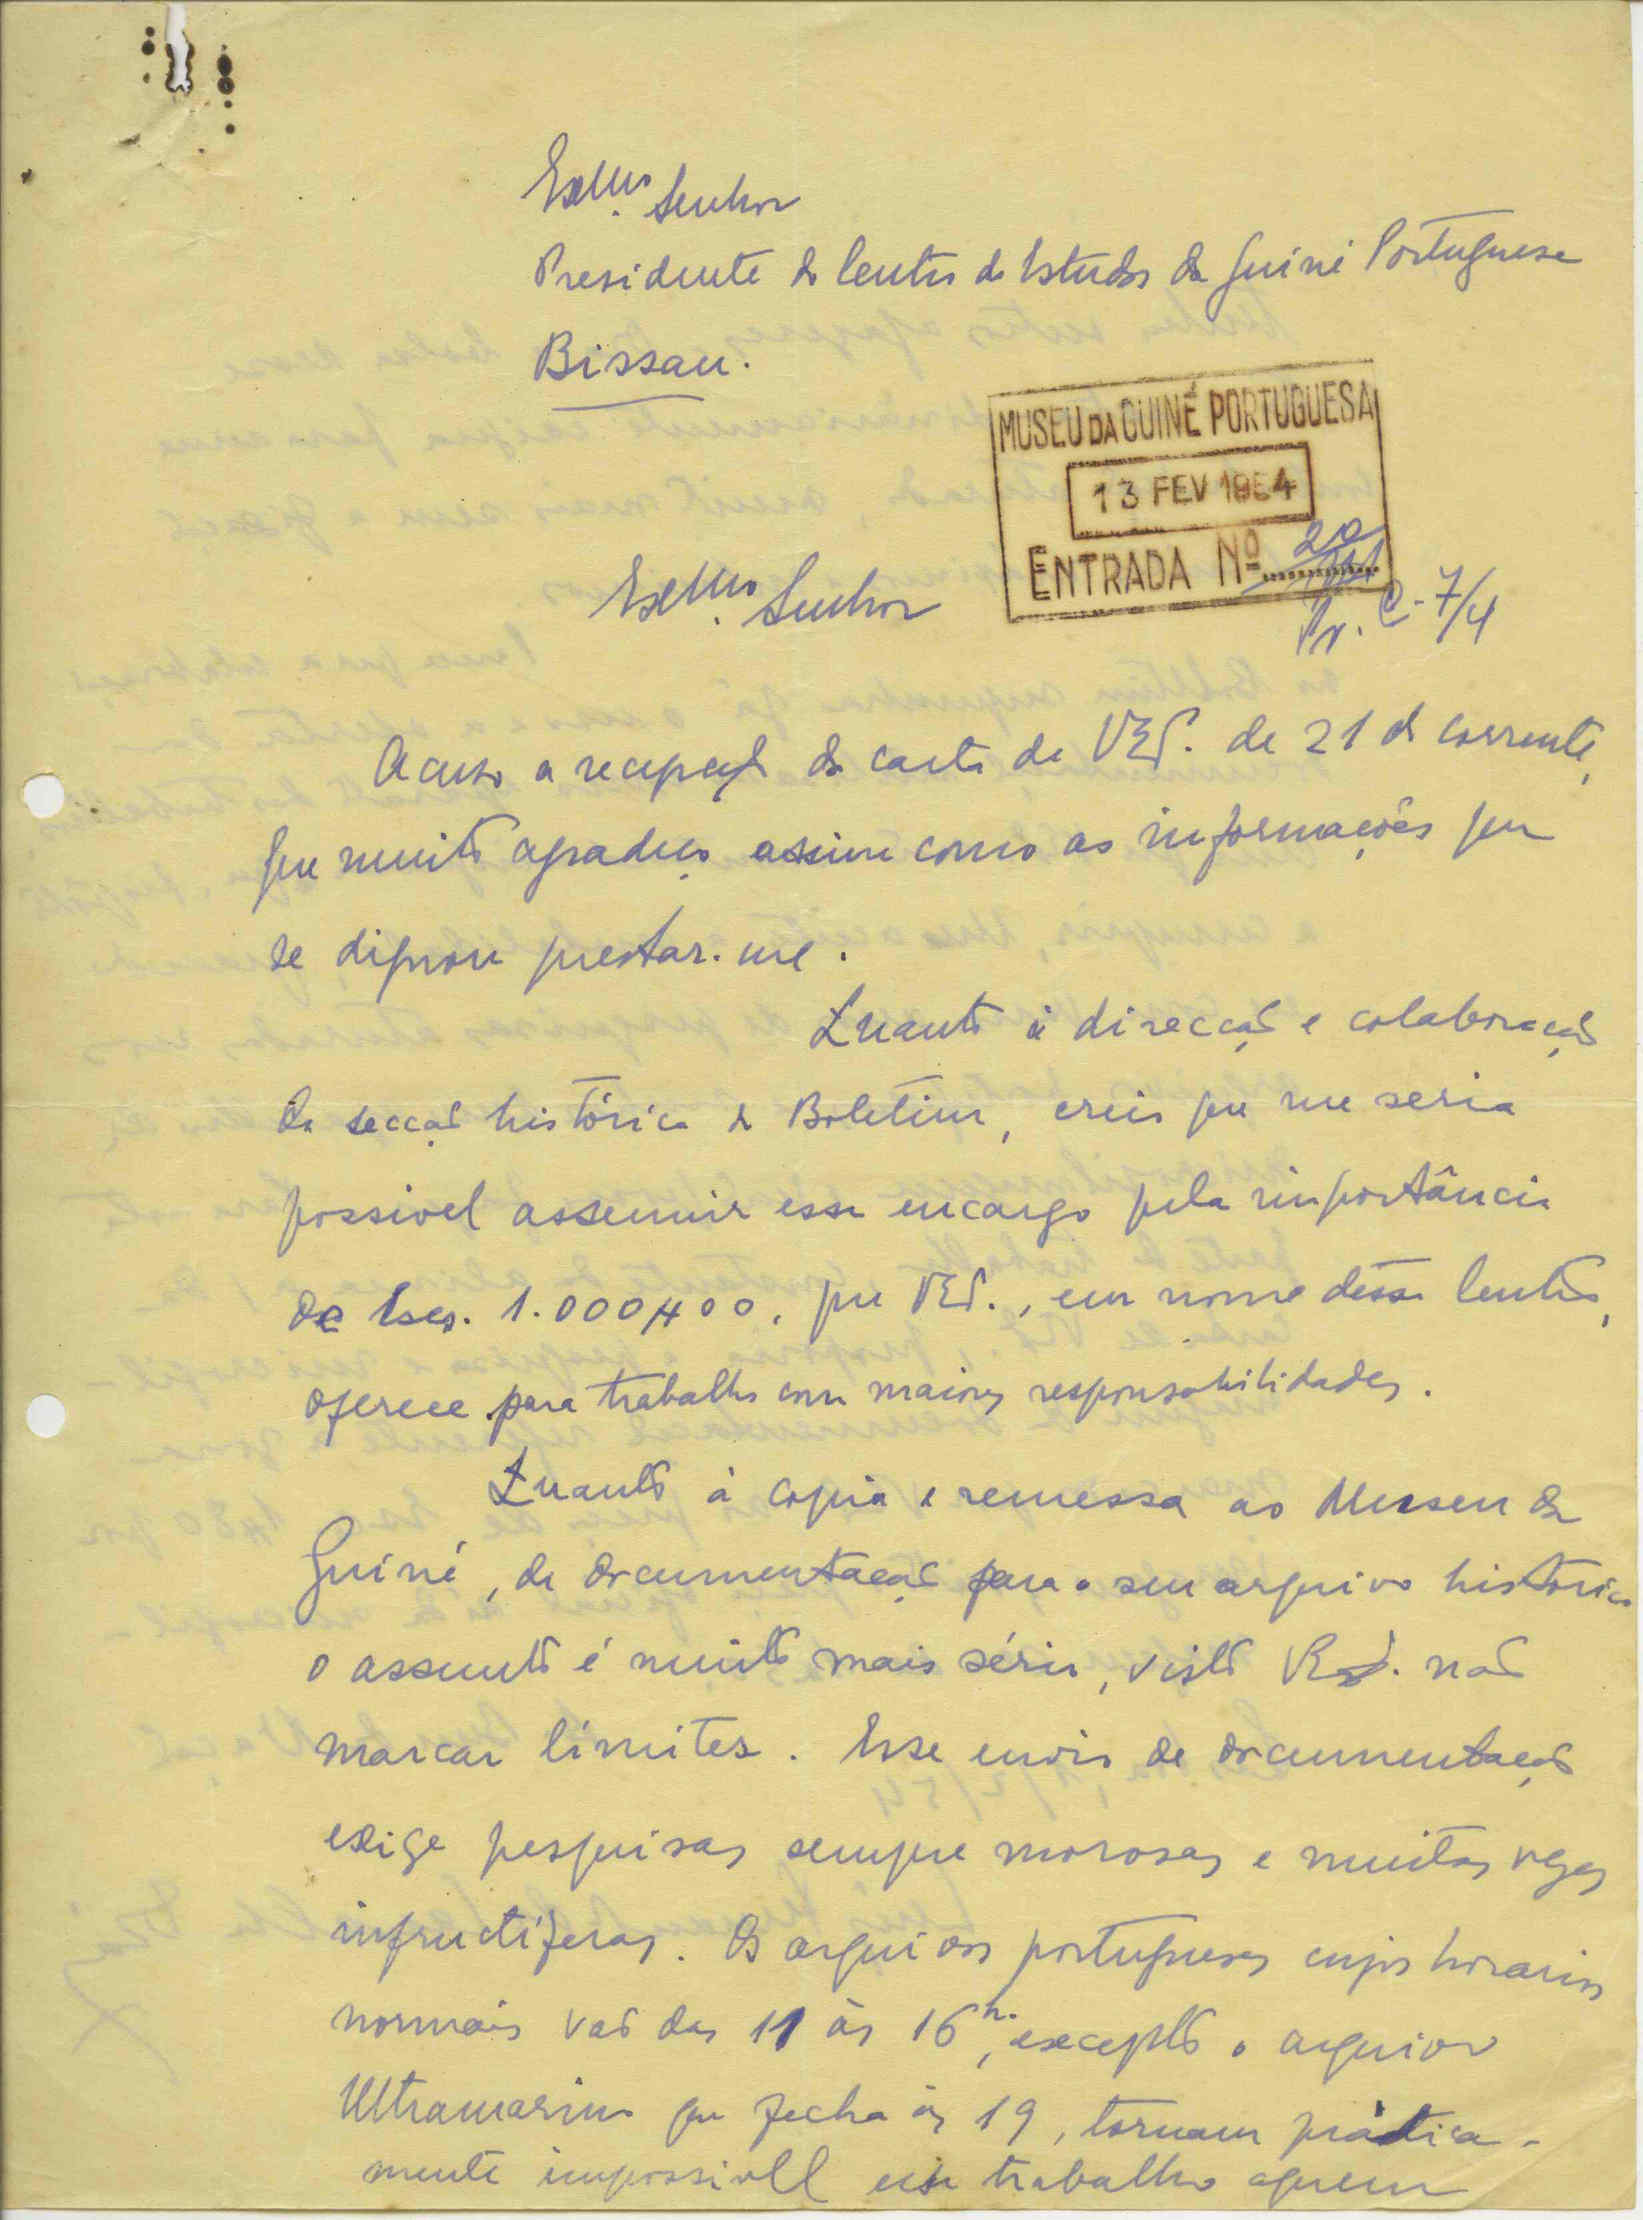 Exmo. Senhor
Presidente do Centro de Estudos da Guiné Portuguesa
Bissau.
MUSEU DA GUINÉ PORTUGUESA
13 FEV 1954
ENTRADA Nº 20
Pr. C-7/4
Exmo. Senhor
Acuso a recepção da carta de VEª. de 21 do corrente,
que muito agradeço assim como as informações que
se dignou prestar-me.
Quanto à direcção e colaboração
da secção histórica do Boletim, creio que me seria
possivel assumir esse encargo pela importância
de Esc. 1.000$00, que VEª., em nome desse Centro,
oferece para trabalho com maiores responsabilidades.
Quanto à copia e remessa ao Museu da
Guiné, de documentação para o seu arquivo historico
o assunto é muito mais sério, visto VEª. não
marcar límites. Esse envio de documentação
exige pesquisas sempre morosas e muitas vezes
infructíferas. Os arquivos portugueses cujos horarios
normais vão das 11 às 16h., excepto o arquivo
Ultramarino que fecha às 19, tornam pràtica-
mente impossivel esse trabalho a quem